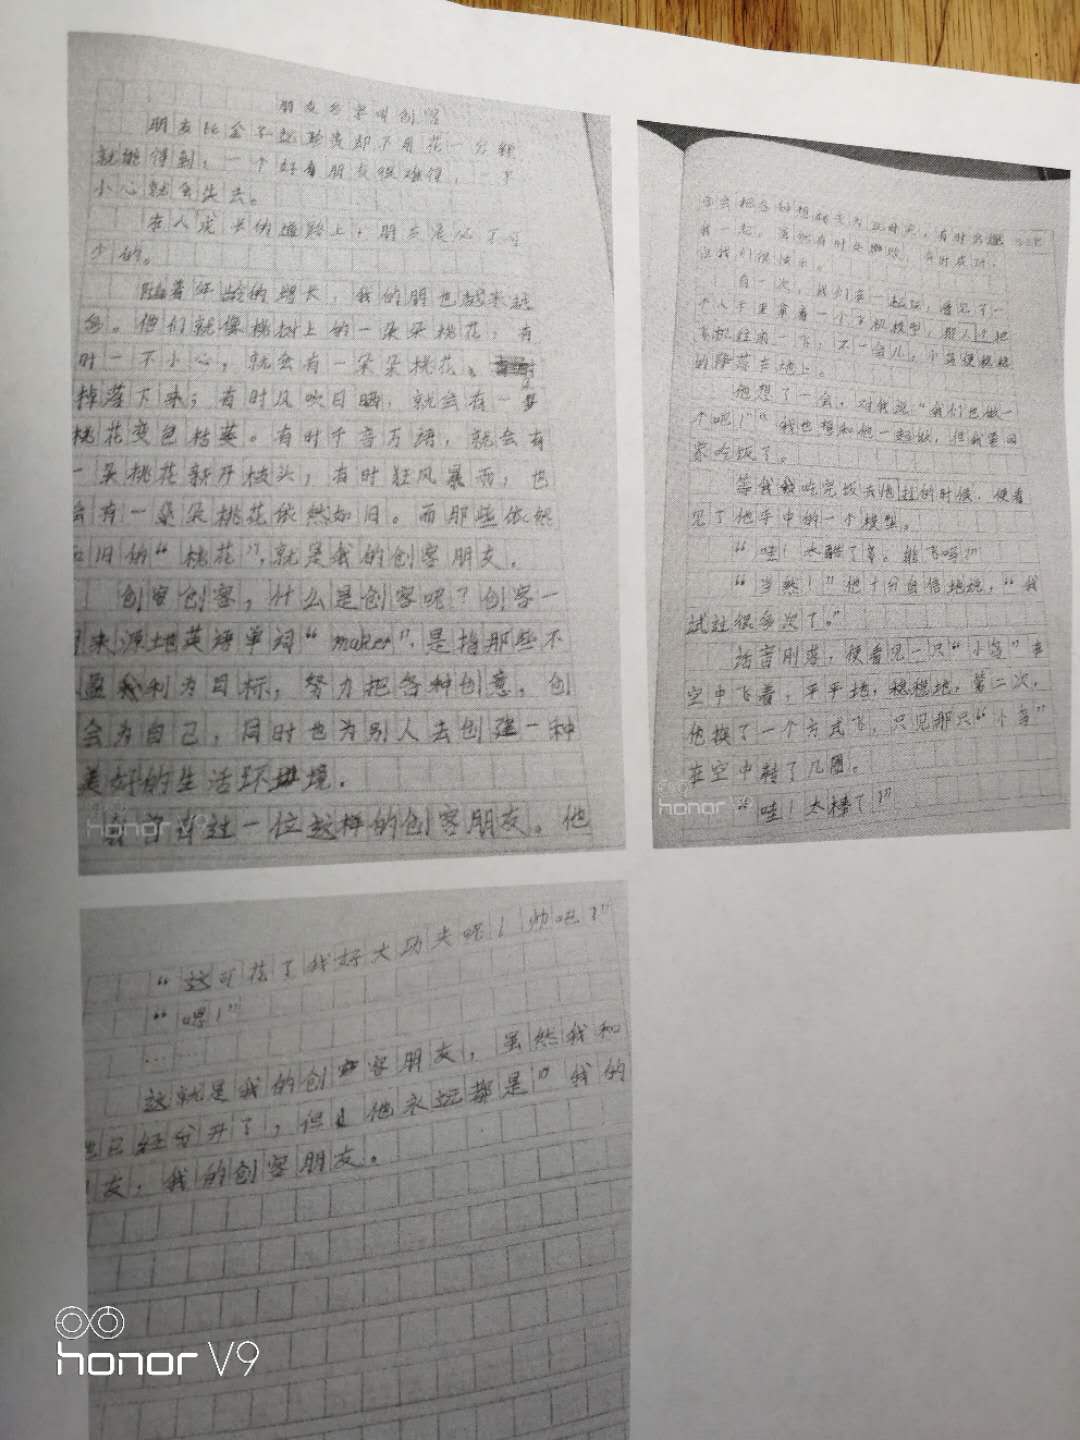 朋友名字叫创客
朋友比金子还珍贵却不用花一分钱
就能得到，一个好朋友很难得，一不
小心就会失去。
在人成长的道路上，朋友是必不可
少的。
随着年龄的增长，我的朋也越来越
多。他们就像桃树上的一朵朵桃花，有
时一不小心，就会有一朵朵桃花、
掉落下来；有时风吹日晒，就会有一
桃花变色枯萎。有时千言万语，就会有
一朵桃花新开枝头，有时狂风暴雨，也
会有一朵朵桃花依然如旧。而那些依然
如旧的“桃花”，就是我的创客朋友。
创客创客，什么是创客呢？创客一
词来源地英语单词“maker”，是指那些不
以盈利为目标，努力把各种创意，创
会为自己，同时也为别人去创建一种
美好的生活环境。
曾有过一位这样的创客朋友。他
honor V9
总会把各种想转变为现实，有时会跟
我一起，当然有时失败，有时成功，
但我们很快乐。
有一次，我们在一起玩，看见了一
个人手里拿着一个飞机模型，那人把
飞机往前一飞，不一会儿，小飞机稳稳
的降落在地上。
他想了一会，对我说“我们也做一
个吧！”“我也想和他一起做，但我要回
家吃饭了。
等我吃完饭去他的时候，便看
见了他手中的一个模型。
“哇！太酷了。能飞吗？”
“当然！”他十分自信地说，“我
试过很多次了。”
话音刚落，便看见一只“小鸟”在
空中飞着，平平地，稳稳地，第二次，
他换了一个方式飞，只见那只“小鸟”
在空中转了几圈。
“哇！太棒了！”
honor
“这可花了我好大功夫呢！帅吧？”
“嗯！”
……
这就是我的创客朋友，虽然我和
他已经分开了，但他永远都是“我的
友，我的创客朋友。
honor V9